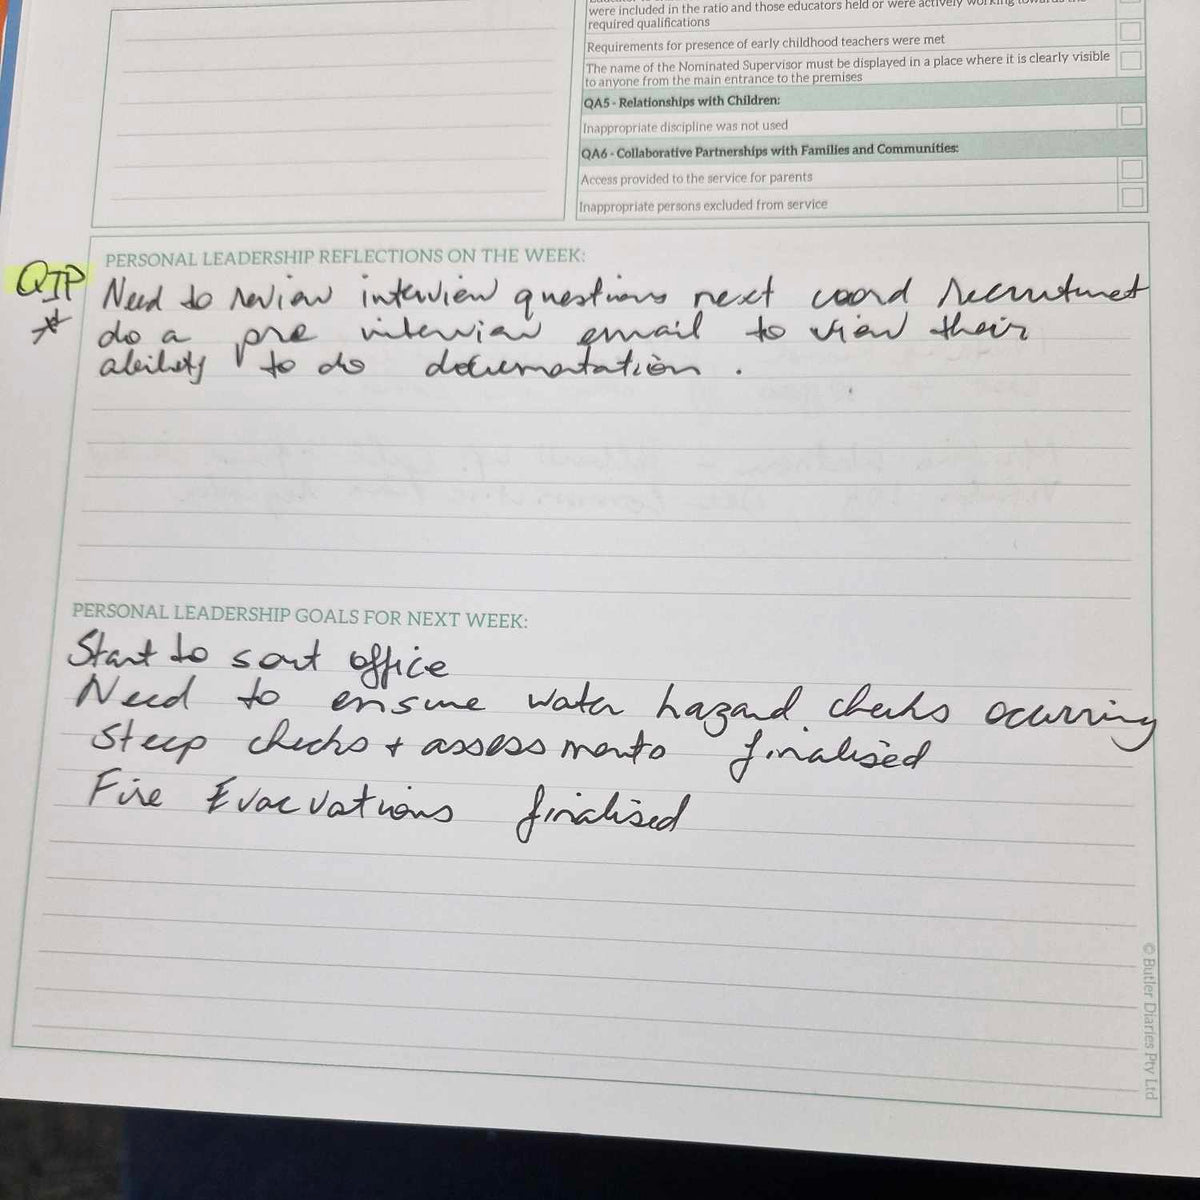 were included in the ratio and those educators held or were actively working towards the
required qualifications
Requirements for presence of early childhood teachers were met
The name of the Nominated Supervisor must be displayed in a place where it is clearly visible
to anyone from the main entrance to the premises
QA5 - Relationships with Children:
Inappropriate discipline was not used
QA6 - Collaborative Partnerships with Families and Communities:
Access provided to the service for parents
Inappropriate persons excluded from service
PERSONAL LEADERSHIP REFLECTIONS ON THE WEEK:
QIP Need to review interview questions next coord recruitment
* do a pre interview email to view their
ability to do documentation.
PERSONAL LEADERSHIP GOALS FOR NEXT WEEK:
Start to sort office
Need to ensure water hazard checks ocurring
Steep checks + assessments finalised
Fire Evacuations finalised
© Butler Diaries Pty Ltd